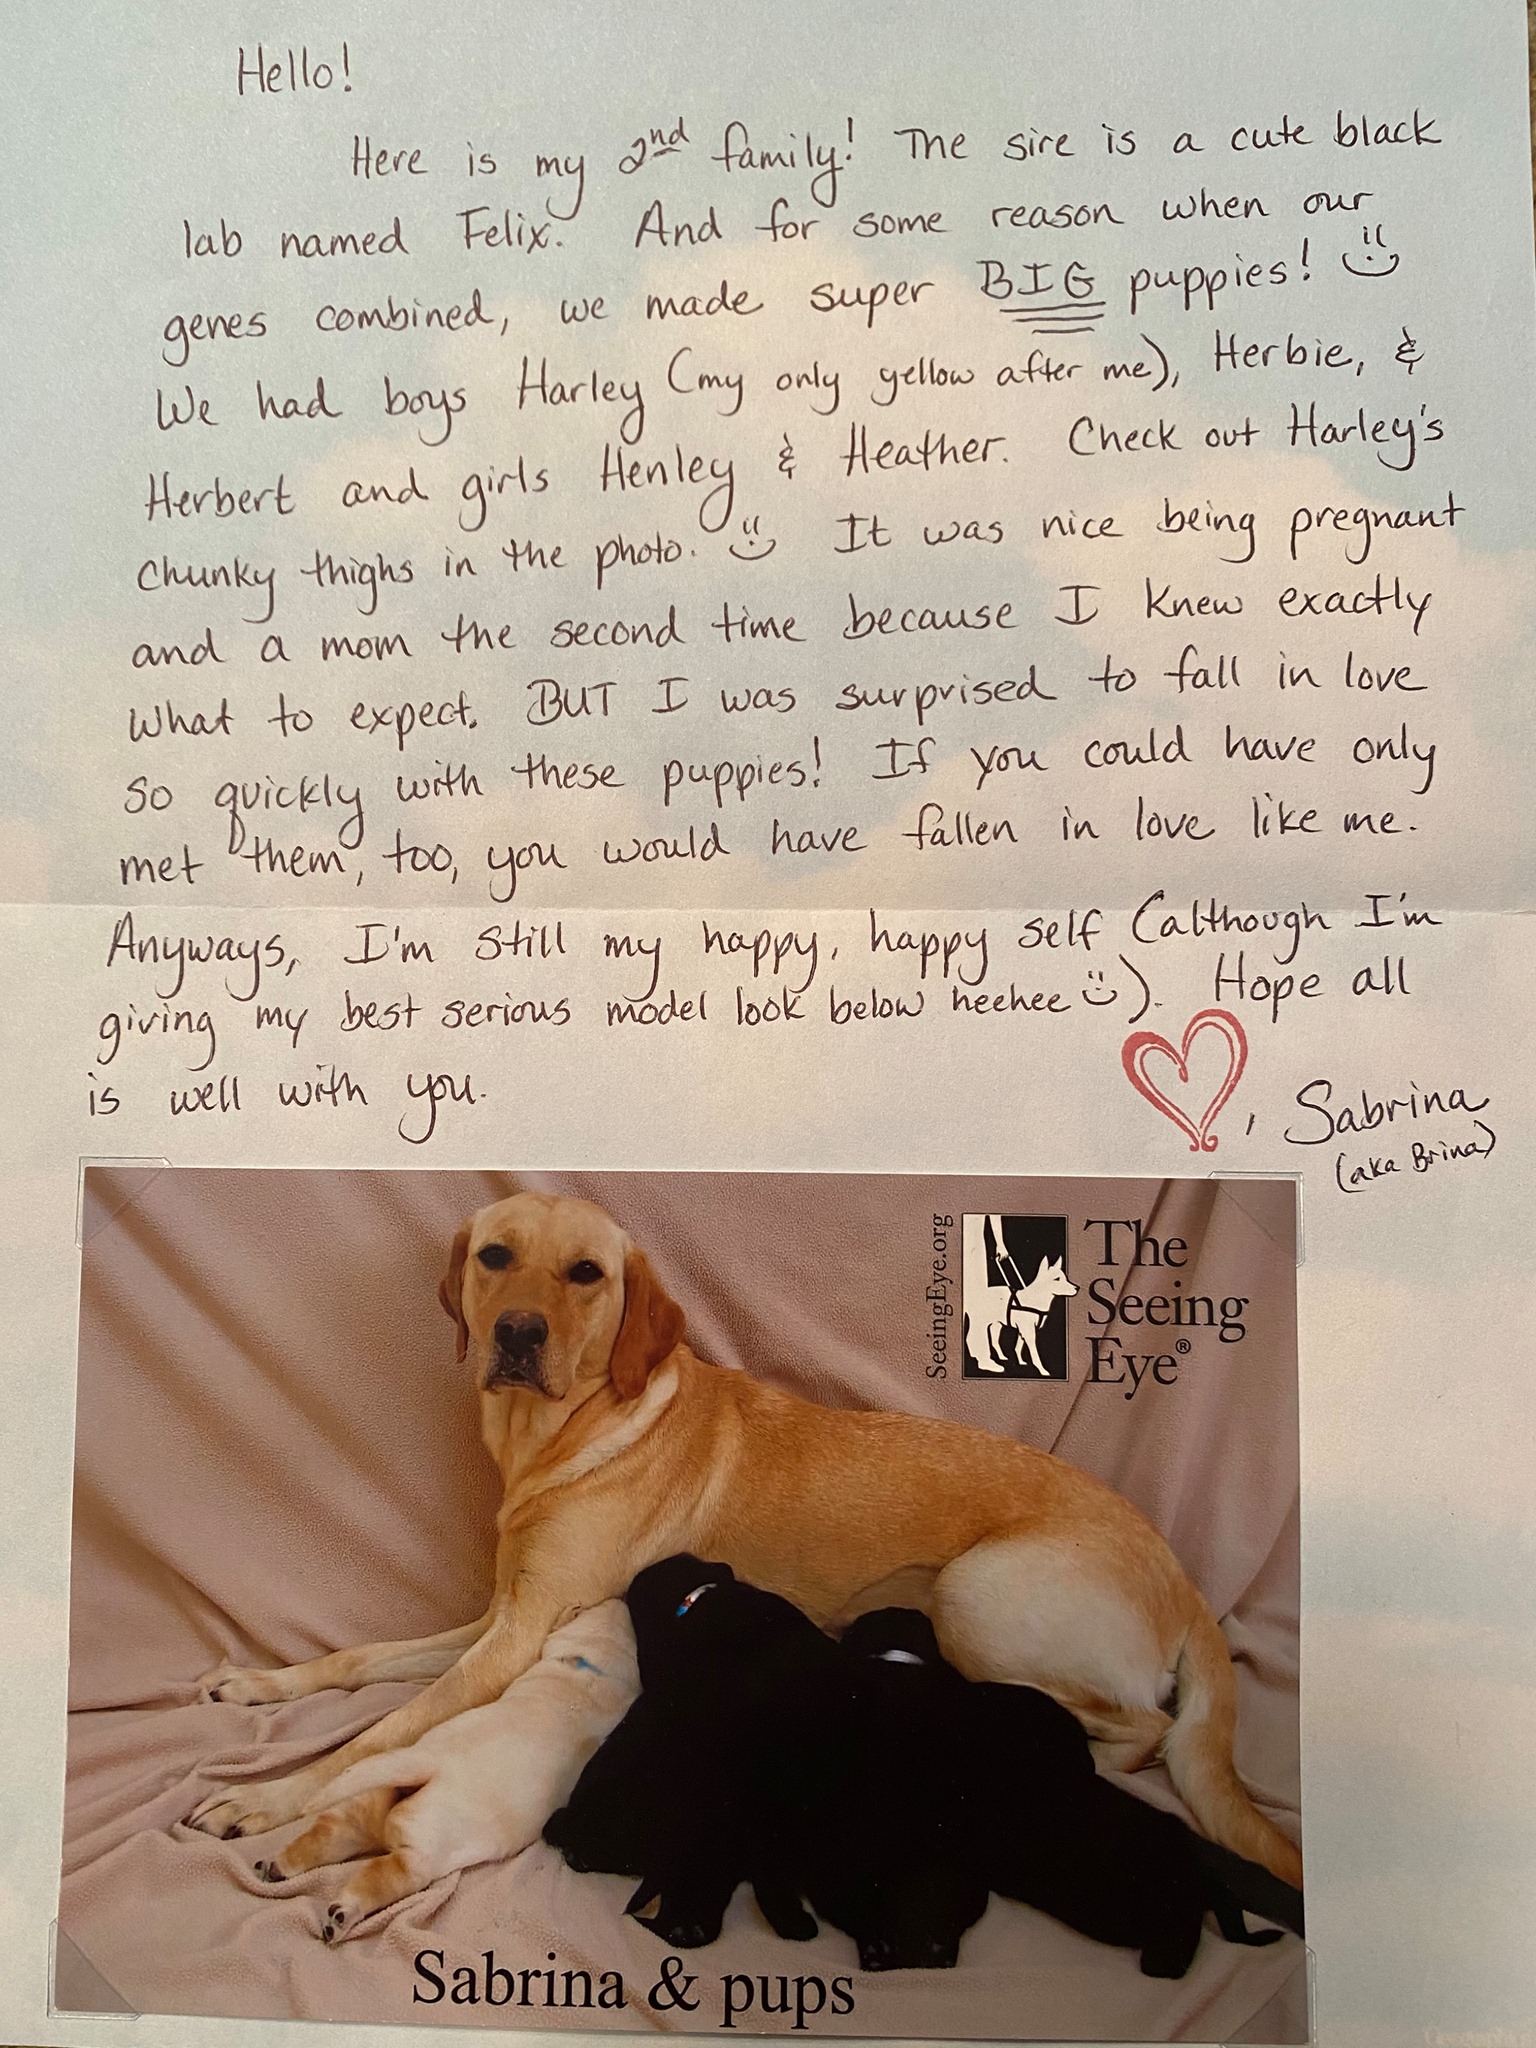 Hello!
Here is my 2nd family! The sire is a cute black
lab named Felix. And for some reason when our
genes combined, we made super BIG puppies!
We had boys Harley (my only yellow after me), Herbie, &
Herbert and girls Henley & Heather. Check out Harley's
chunky thighs in the photo. It was nice being pregnant
and a mom the second time because I knew exactly
what to expect. BUT I was surprised to fall in love
so quickly with these puppies! If you could have only
met them, too, you would have fallen in love like me.
Anyways, I'm still my happy, happy self (although I'm
giving my best serious model look below heehee). Hope all
is well with you.
, Sabrina
(aka Brina)
SeeingEye.org
The
Seeing
Eye®
Sabrina & pups